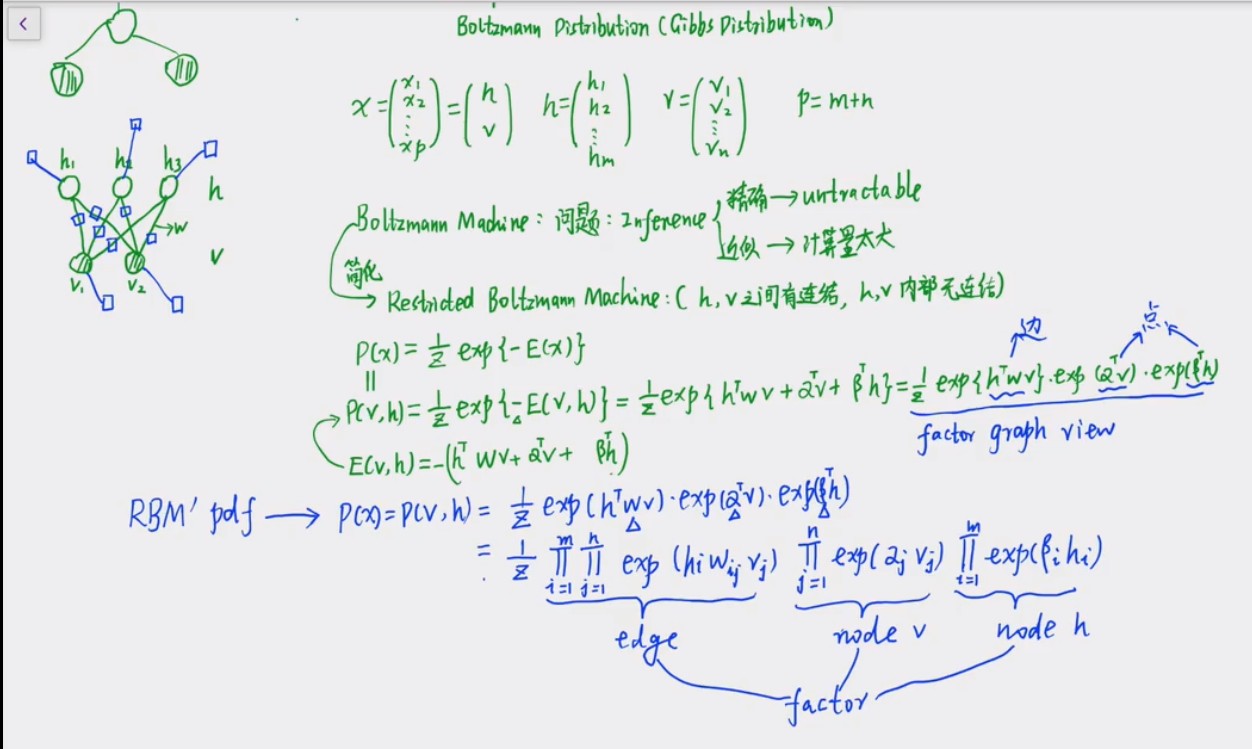 Boltzmann Distribution (Gibbs Distribution)
x = (x₁ x₂ ⋮ xp) = (h v) h = (h₁ h₂ ⋮ hm) v = (v₁ v₂ ⋮ vn) p = m+n
h₁ h₂ h₃ h
w
v₁ v₂ v
Boltzmann Machine: 问题: Inference { 精确 → untractable
近似 → 计算量太大
简化
→ Restricted Boltzmann Machine: ( h, v 之间有连结, h, v 内部无连结)
边 点
P(x) = 1/Z exp{-E(x)}
||
P(v,h) = 1/Z exp{-E(v,h)} = 1/Z exp{hᵀwv + αᵀv + βᵀh} = 1/Z exp{hᵀwv}·exp(αᵀv)·exp(βᵀh)
factor graph view
E(v,h) = -(hᵀWv + αᵀv + βᵀh)
RBM' pdf → P(x) = P(v,h) = 1/Z exp(hᵀwv)·exp(αᵀv)·exp(βᵀh)
Δ Δ Δ
= 1/Z ∏ᵢ₌₁ᵐ ∏ⱼ₌₁ⁿ exp(hᵢwᵢⱼvⱼ) ∏ⱼ₌₁ⁿ exp(αⱼvⱼ) ∏ᵢ₌₁ᵐ exp(βᵢhᵢ)
edge node v node h
factor